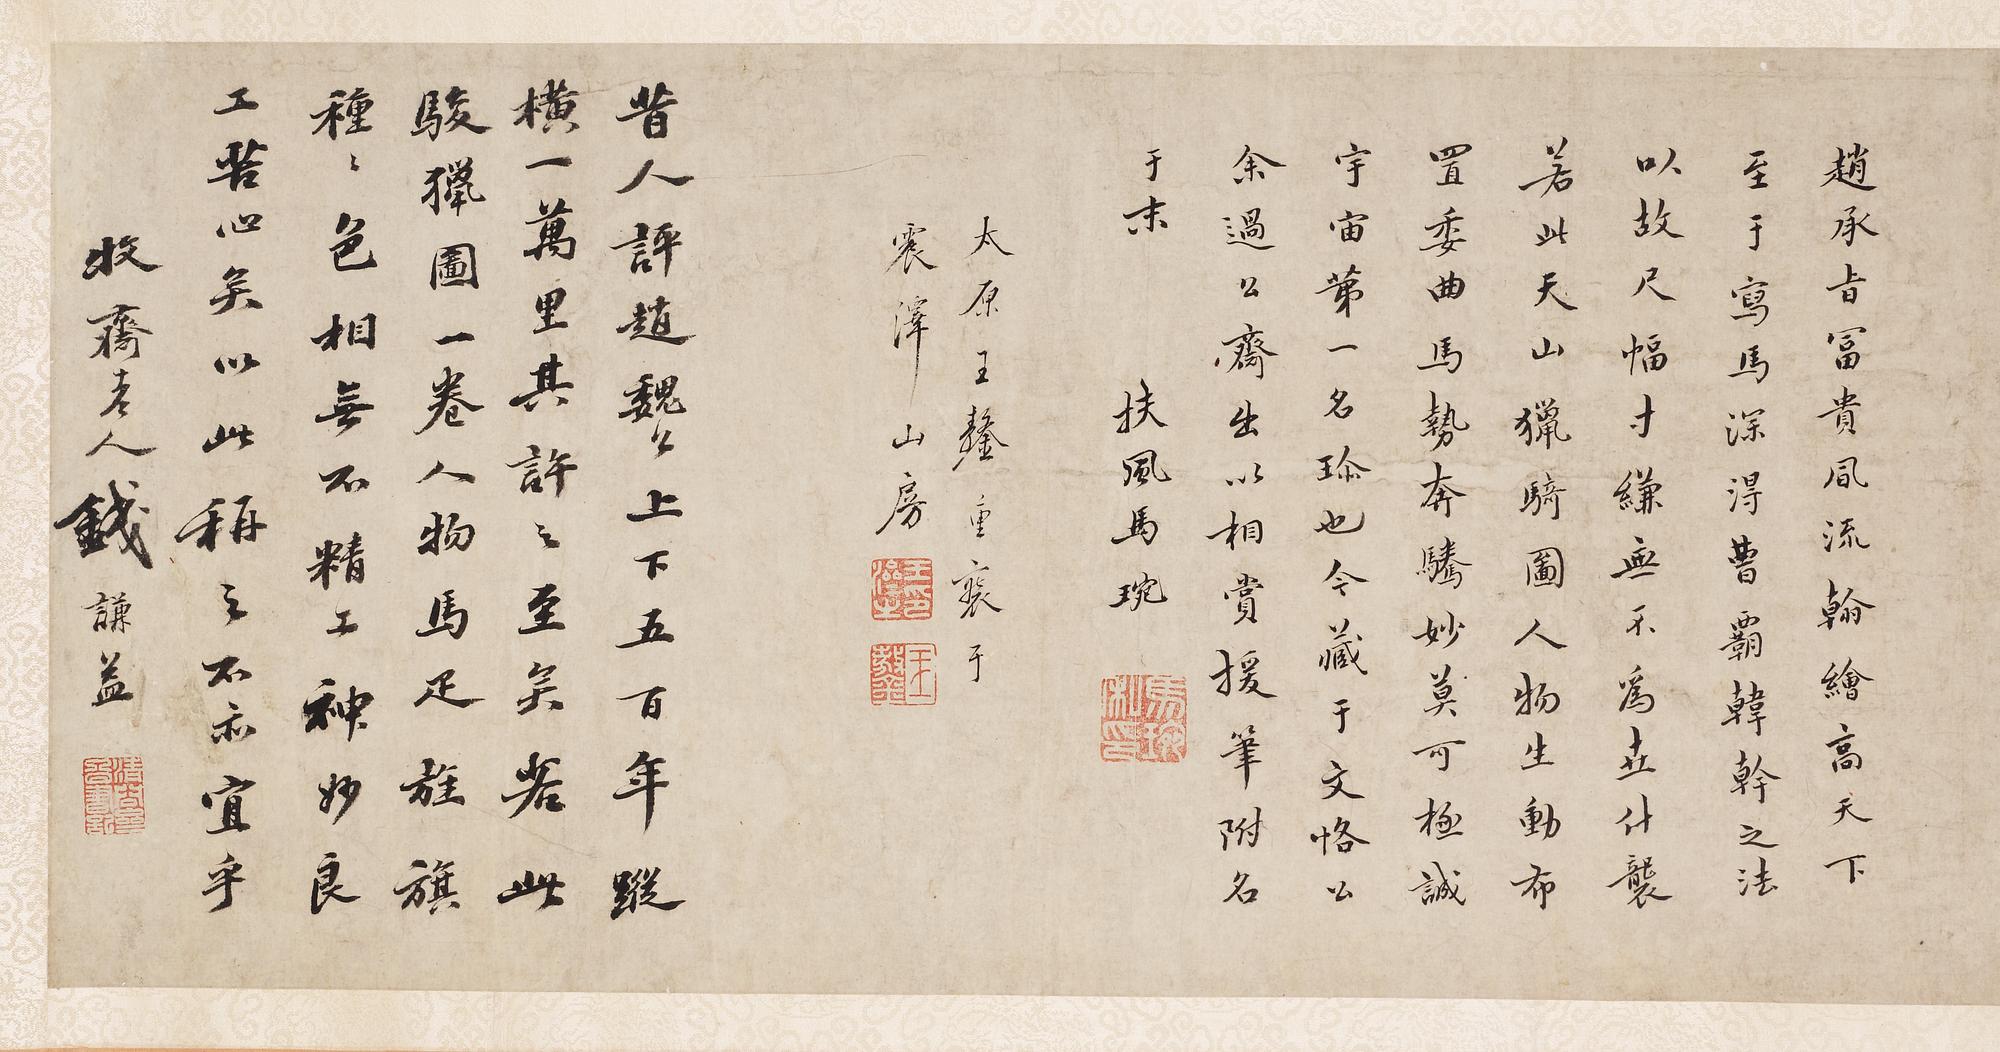 趙承旨冨貴風流翰繪高天下
至于寫馬深得曹霸韓幹之法
以故尺幅寸縑無不爲世什襲
若此天山獵騎圖人物生動布
置委曲馬勢奔騰妙莫可極誠
宇宙第一名珎也今藏于文恪公
余過公齋出以相賞援筆附名
于末　扶風馬琬
太原王鏊重裝于
震澤山房
昔人評趙魏公上下五百年蹤
橫一萬里其許之至矣若此
駿獵圖一卷人物馬疋旌旗
種々色相無不精工神妙良
工苦心矣以此稱之不亦宜乎
牧齋老人錢謙益